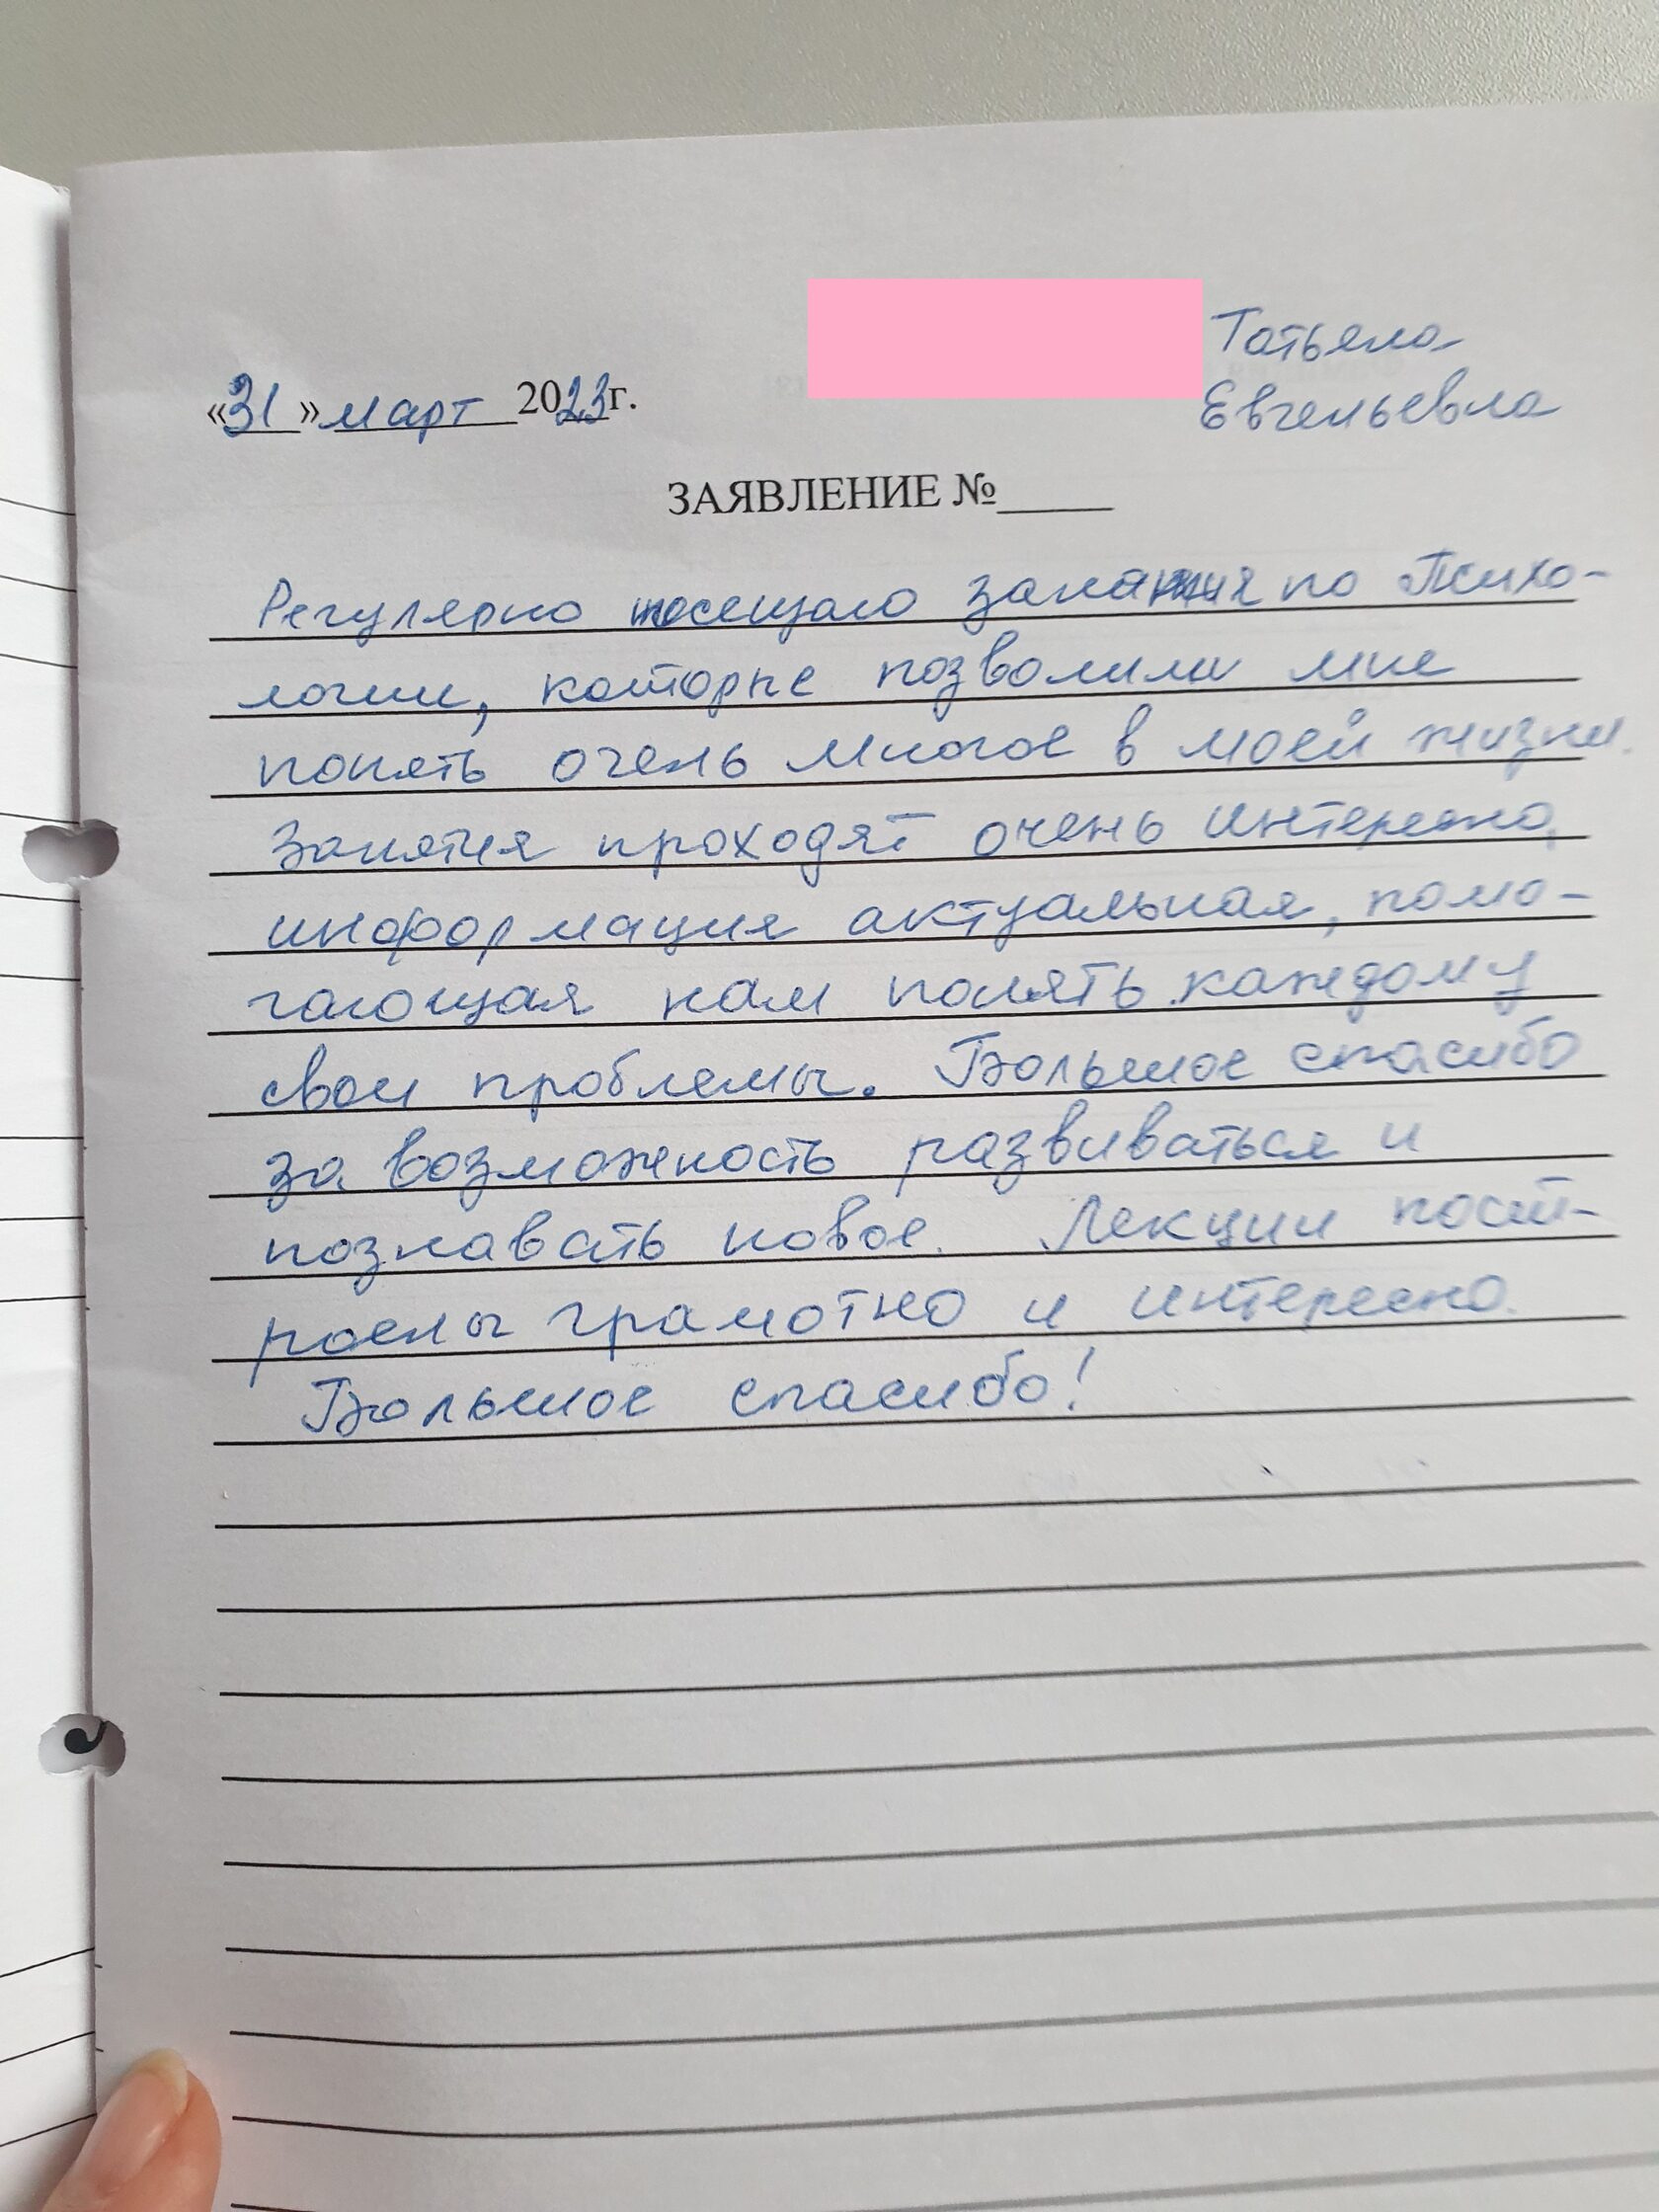 Татьяна
Евгеньевна
«31» март 2023г.
ЗАЯВЛЕНИЕ №
Регулярно посещаю занятия по Психо-
логии, которые позволили мне
понять очень многое в моей жизни.
Занятия проходят очень интересно,
информация актуальная, помо-
гающая нам понять каждому
свои проблемы. Большое спасибо
за возможность развиваться и
познавать новое. Лекции пост-
роены грамотно и интересно.
Большое спасибо!